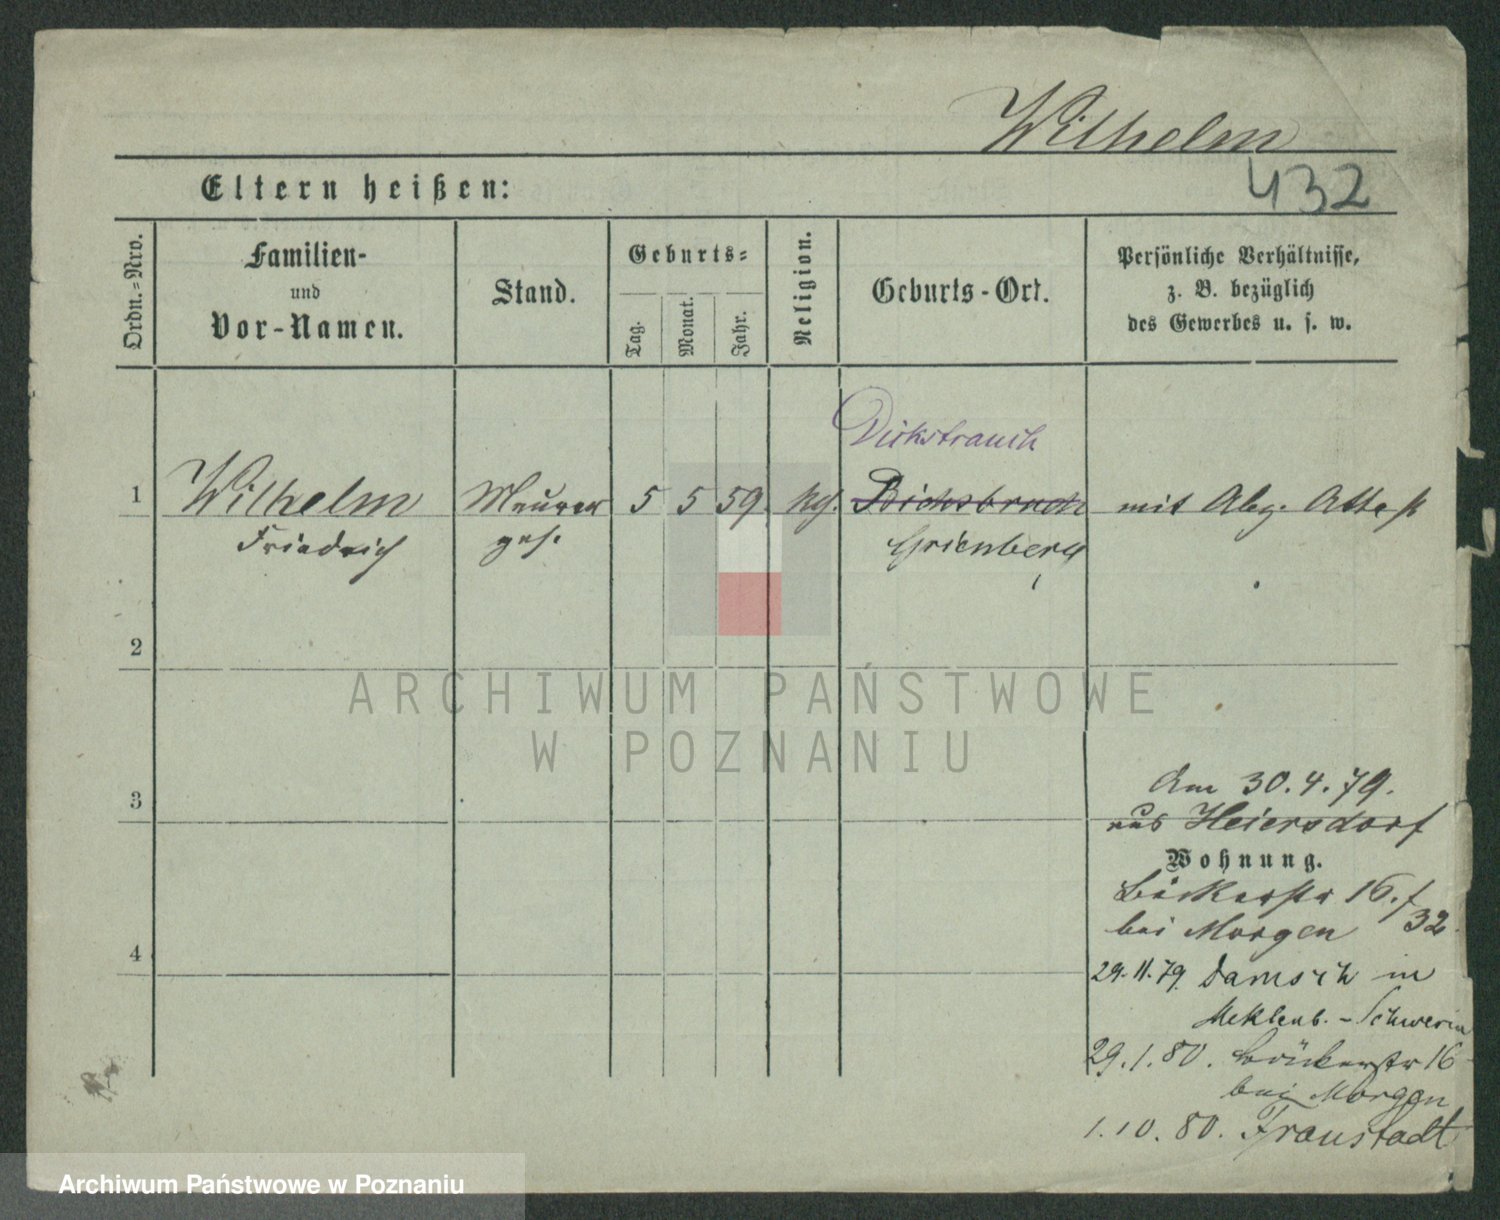 Wilhelm
Eltern heißen:
432
Ordn.=Nro.
Familien-
und
Vor-Namen.
Stand.
Geburts=
Tag.
Monat.
Jahr.
Religion.
Geburts-Ort.
Persönliche Verhältnisse,
z. B. bezüglich
des Gewerbes u. s. w.
Dickstrauch
1 Wilhelm Maurer 5 5 59. mit Abg. Attest
Friedrich ges. Grienberg
2
ARCHIWUM PAŃSTWOWE
W POZNANIU
3
Am 30.4.79.
aus Heiersdorf
Wohnung.
Bäckerstr 16.
bei Morgen 32
4
29.11.79. Damsch in
Meklenb.-Schwerin
29.1.80. 16
bei Morgen
1.10.80. Fraustadt
Archiwum Państwowe w Poznaniu